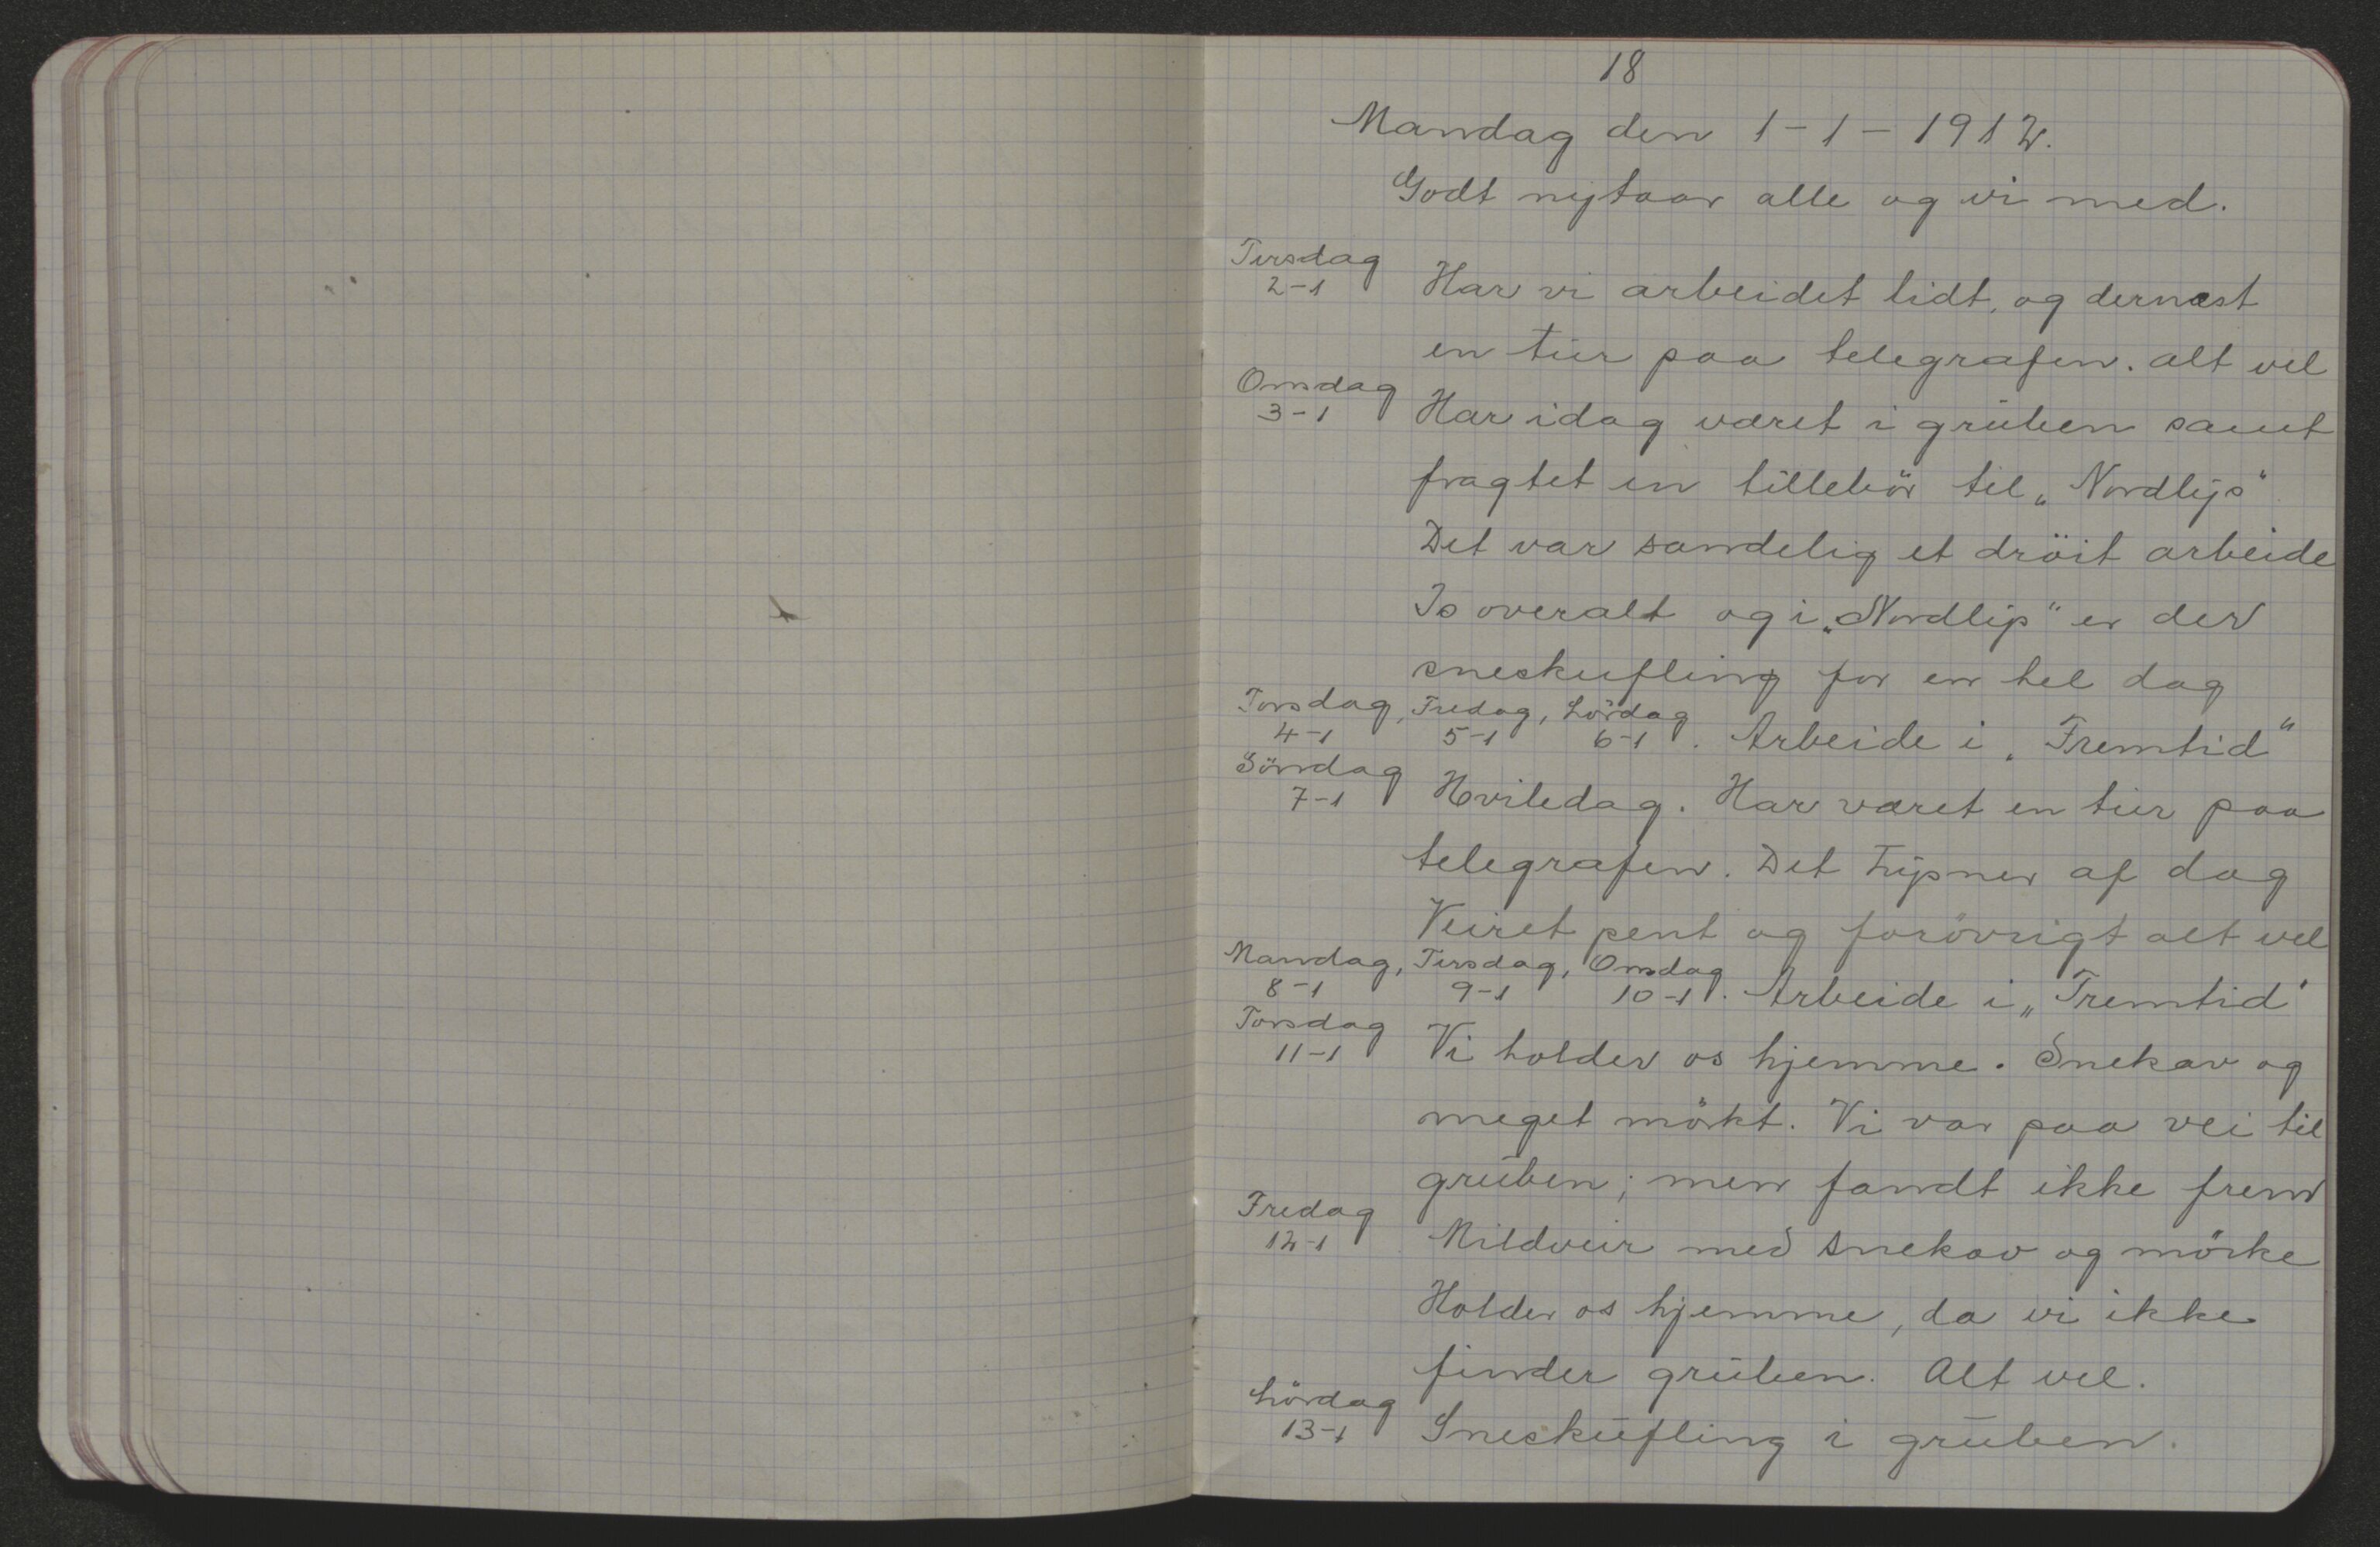 18
Mandag den 1-1-1912.
Godt nytaar alle og vi med.
Tirsdag
2-1 Har vi arbeidet lidt, og dernæst
en tur paa telegrafen. alt vel
Onsdag
3-1 Har idag været i gruben samt
fragtet en tillebör til „Nordlys"
Det var sandelig et dröit arbeide
Is overalt og i „Nordlys" er der
sneskufling for en hel dag
Torsdag, Fredag, Lördag
4-1 5-1 6-1. Arbeide i „Fremtid"
Söndag
7-1 Hviledag. Har været en tur paa
telegrafen. Det lysner af dag
Veiret pent og forövrigt alt vel
Mandag, Tirsdag, Onsdag
8-1 9-1 10-1. Arbeide i „Fremtid"
Torsdag
11-1 Vi holder os hjemme. Snekav og
meget mörkt. Vi var paa vei til
gruben; men fandt ikke frem
Fredag
12-1 Mildveir med snekav og mörke
Holder os hjemme, da vi ikke
finder gruben. Alt vel.
Lördag
13-1 Sneskufling i gruben.